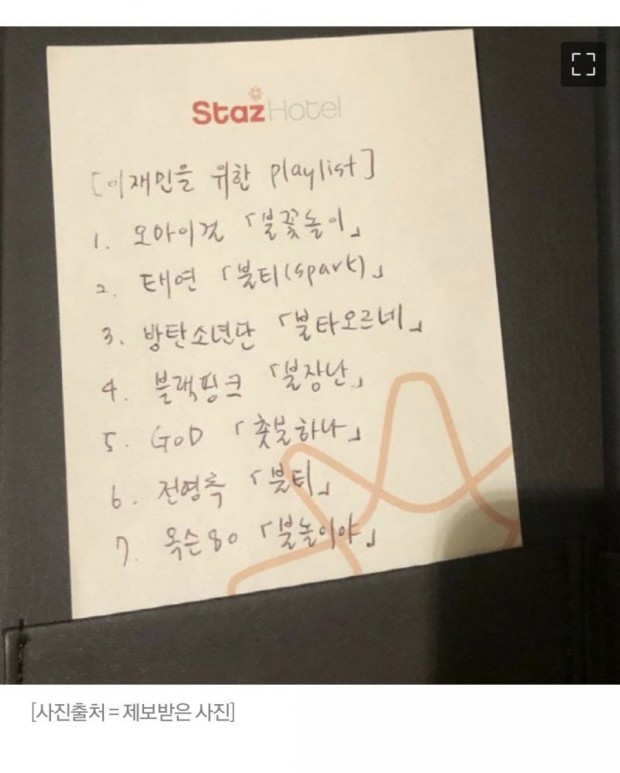 Staz Hotel
[이재민을 위한 playlist]
1. 오마이걸 「불꽃놀이」
2. 태연 「불티(spark)」
3. 방탄소년단 「불타오르네」
4. 블랙핑크 「불장난」
5. GOD 「촛불하나」
6. 전영록 「불티」
7. 옥슨80 「불놀이야」
[사진출처 = 제보받은 사진]